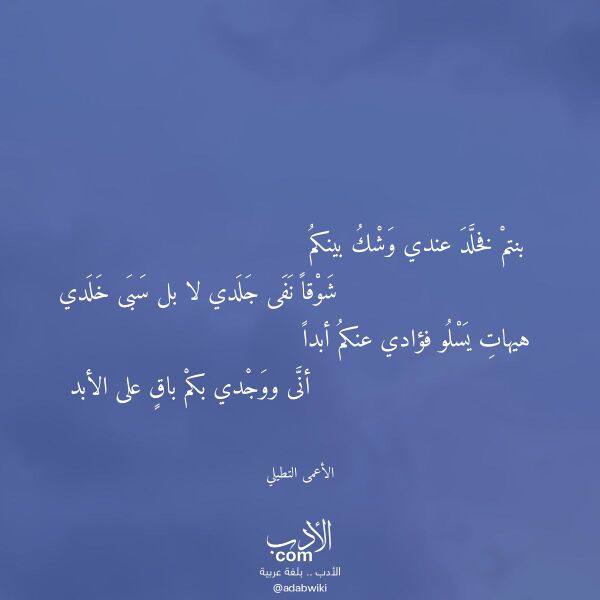 بنتمْ فخلَّدَ عندي وَشْكُ بينكمُ
شَوْقاً نَفَى جَلَدي لا بل سَبَى خَلَدي
هيهاتِ يَسْلُو فؤادي عنكمُ أبداً
أنَّى ووَجْدي بكمْ باقٍ على الأبد
الأعمى التطيلي
الأدب
com
الأدب .. بلغة عربية
@adabwiki